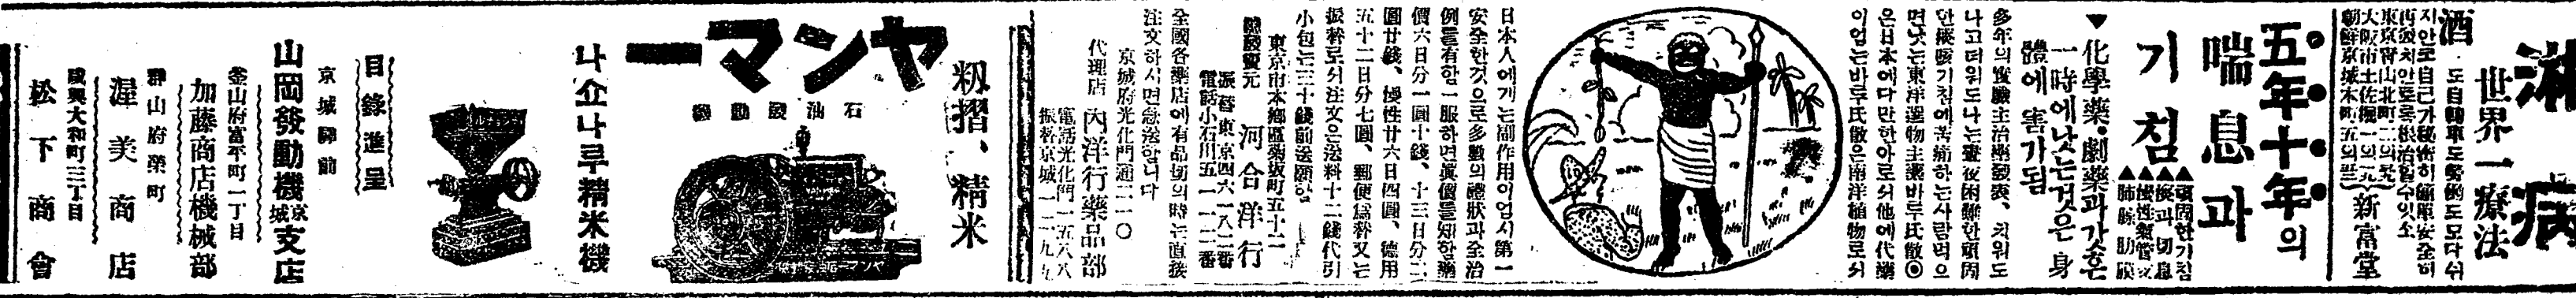 淋病
世界一療法
酒
도自轉車도勞働도모다쉬
지안코自己가秘密히簡單安全히
再發치안토록根治할수잇소
東京靑山北町二의
大阪市土佐堀一의
朝鮮京城本町五의
新富堂
五年十年의
喘息과
기침
▲頑固한기침
▲痰과切息
▲慢性氣管支
▲肺肋膜
▼化學藥·劇藥과가흔
一時에낫는것은身
體에害가됨
多年의實驗主治 치위도
나고더위도나는晝夜困難한頑固
한痰咳기침에苦痛하는사람먹으
면낫는東洋運物主議바루氏散은
은日本에다만한아로서他에代藥
이업는바루氏散은南洋植物로서
日本人에게는副作用이업시第一
安全한것으로多數의體狀과全治
例를有함一服하면眞價를知할
價六日分一圓十錢、十三日分二
圓廿錢、慢性廿六日四圓、德用
五十二日分七圓、郵便爲替又는
振替로서注文은送料十二錢代引
小包는三十錢前送願함
東京市本鄕區菊坂町五十一
河合洋行
振替東京四六一八二番
電話小石川五一一二番
全國各藥店에有品切의時는直接
注文하시면急送합니다
京城府光化門通二一〇
代理店 內洋行藥品部
電話光化門一五八八
振替京城一二九九
籾摺、精米
ヤンマー
石油發動機
나쇼나루精米機
目錄進呈
京城驛前
山岡發動機京城支店
釜山府富平町一丁目
加藤商店機械部
群山府榮町
渥美商店
咸興大和町三丁目
松下商會